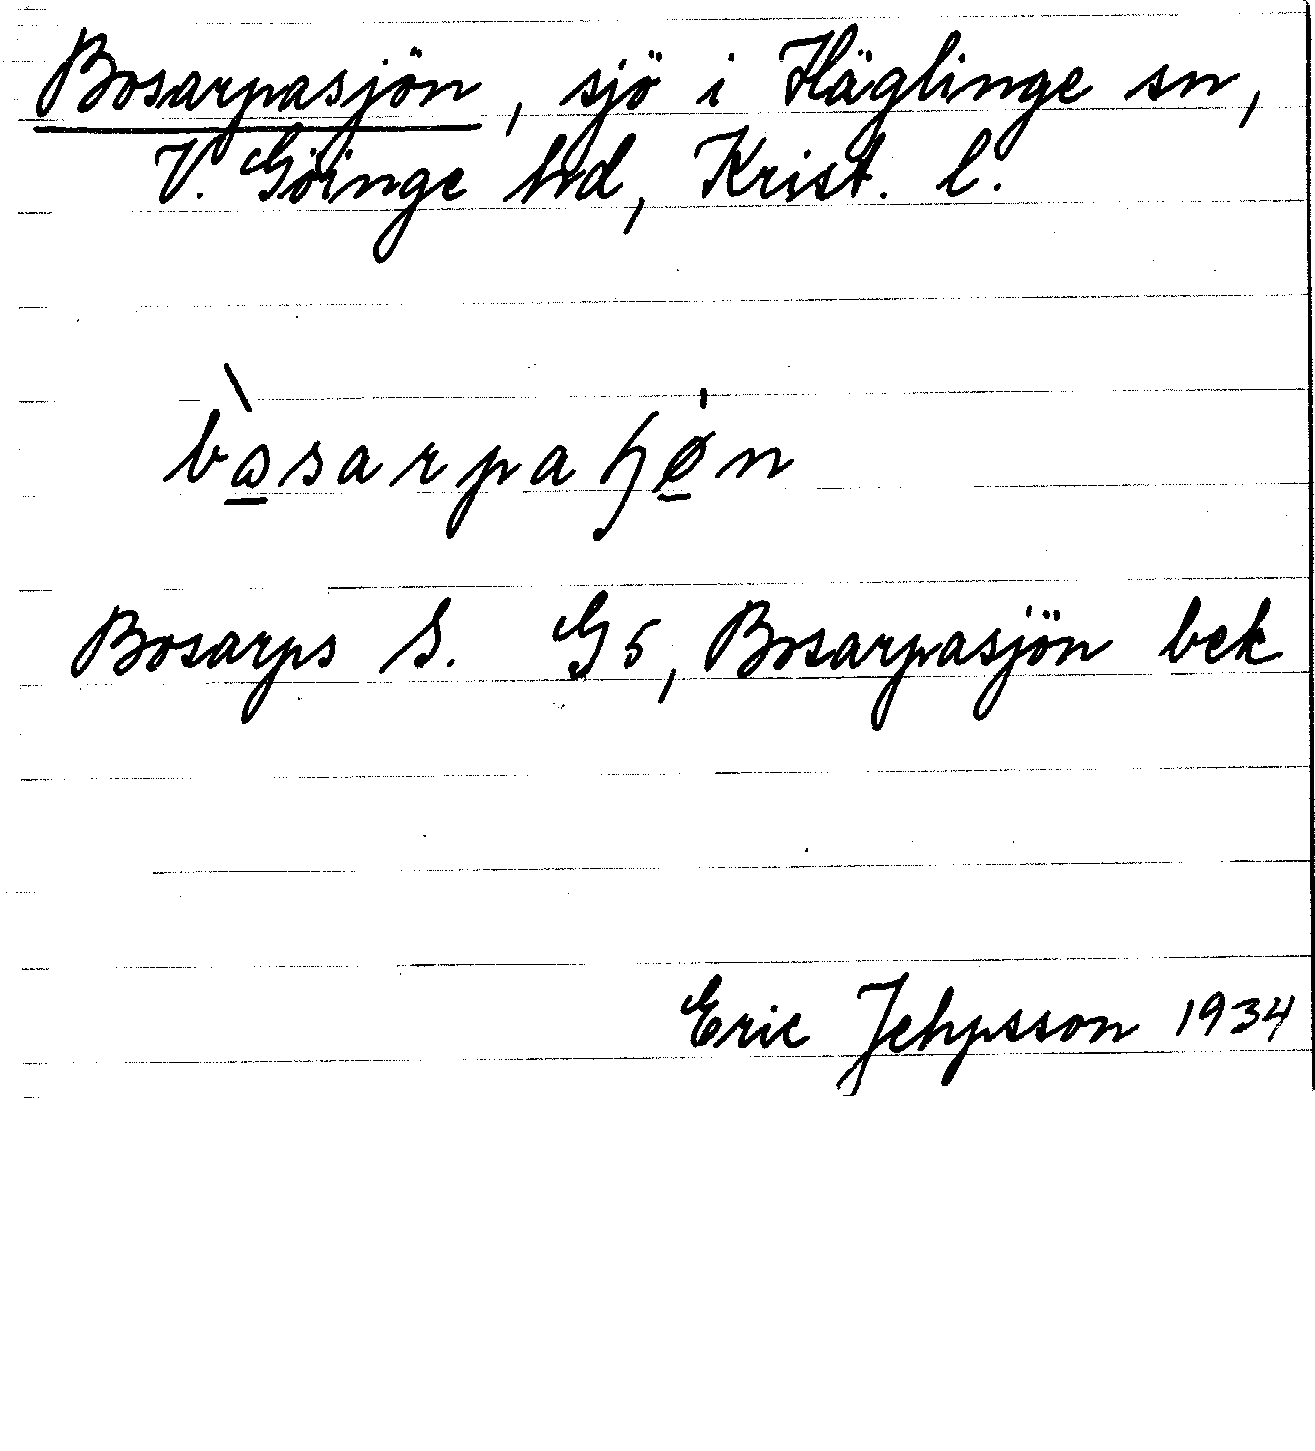 Bosarpasjön, sjö i Häglinge sn,
V. Göinge hd, Krist. l.
Bosarps S. G5, Bosarpasjön bek
Eric Jehpsson 1934